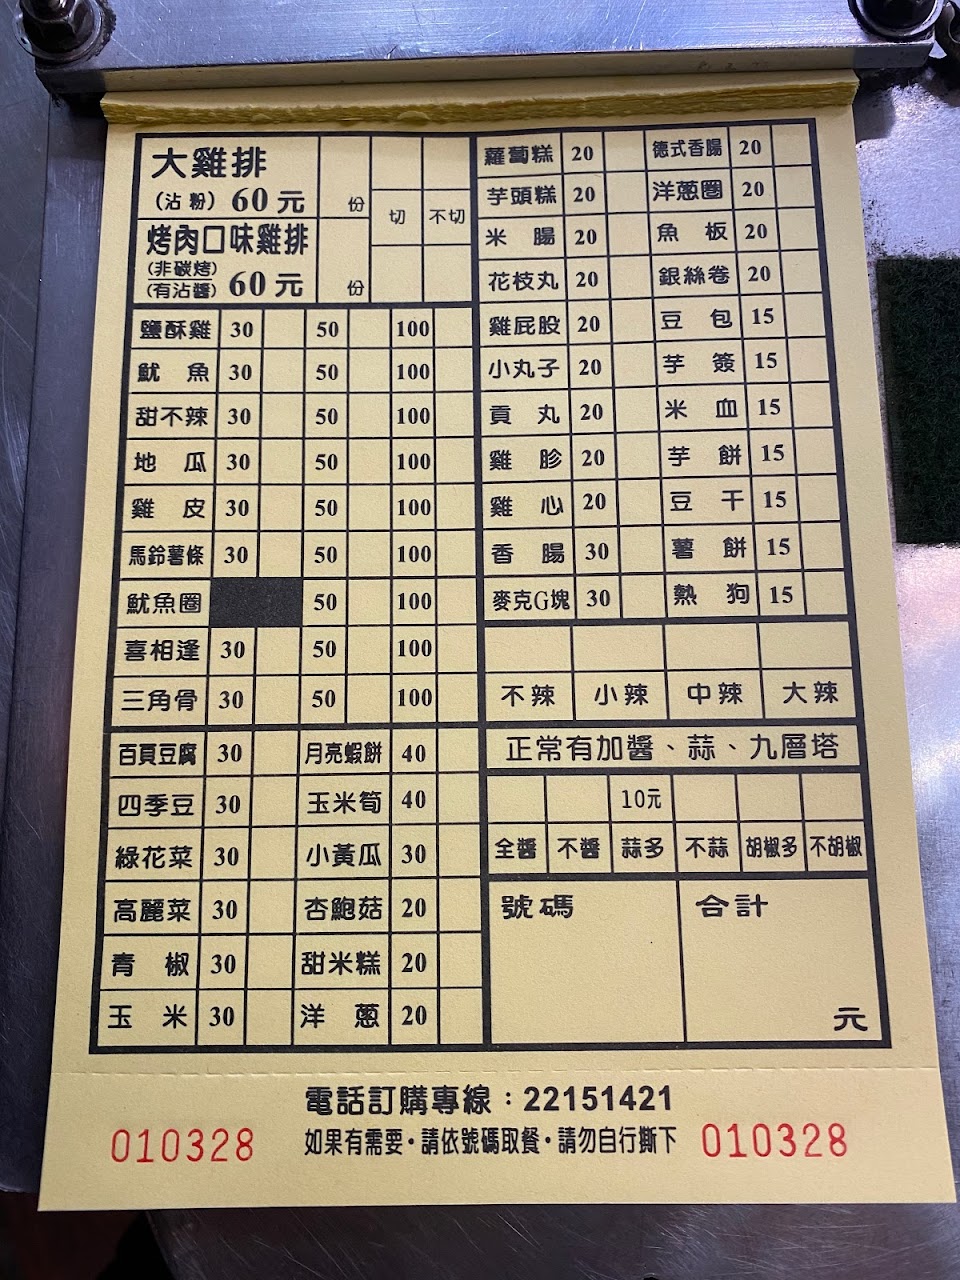 大雞排
(沾粉) 60元 份
切 不切
烤肉口味雞排
(非碳烤)
(有沾醬) 60元 份
鹽酥雞 30 50 100
魷魚 30 50 100
甜不辣 30 50 100
地瓜 30 50 100
雞皮 30 50 100
馬鈴薯條 30 50 100
魷魚圈 50 100
喜相逢 30 50 100
三角骨 30 50 100
百頁豆腐 30 月亮蝦餅 40
四季豆 30 玉米筍 40
綠花菜 30 小黃瓜 30
高麗菜 30 杏鮑菇 20
青椒 30 甜米糕 20
玉米 30 洋蔥 20
蘿蔔糕 20 德式香腸 20
芋頭糕 20 洋蔥圈 20
米腸 20 魚板 20
花枝丸 20 銀絲卷 20
雞屁股 20 豆包 15
小丸子 20 芋簽 15
貢丸 20 米血 15
雞胗 20 芋餅 15
雞心 20 豆干 15
香腸 30 薯餅 15
麥克G塊 30 熱狗 15
不辣 小辣 中辣 大辣
正常有加醬、蒜、九層塔
10元
全醬 不醬 蒜多 不蒜 胡椒多 不胡椒
號碼 合計
元
電話訂購專線：22151421
010328 如果有需要•請依號碼取餐•請勿自行撕下 010328